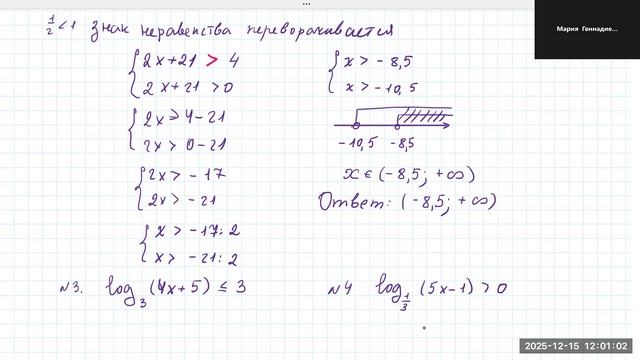 ...
Мария Геннадие...
1/2 < 1 Знак неравенства переворачивается
{ 2x + 21 > 4
2x + 21 > 0
{ 2x > 4 - 21
2x > 0 - 21
{ 2x > - 17
2x > - 21
{ x > - 17 : 2
x > - 21 : 2
{ x > - 8,5
x > - 10,5
- 10,5 - 8,5
x ∈ (- 8,5; + ∞)
Ответ: (- 8,5; + ∞)
N3. log₃ (4x + 5) ≤ 3
N4 log_{1/3} (5x - 1) > 0
2025-12-15 12:01:02